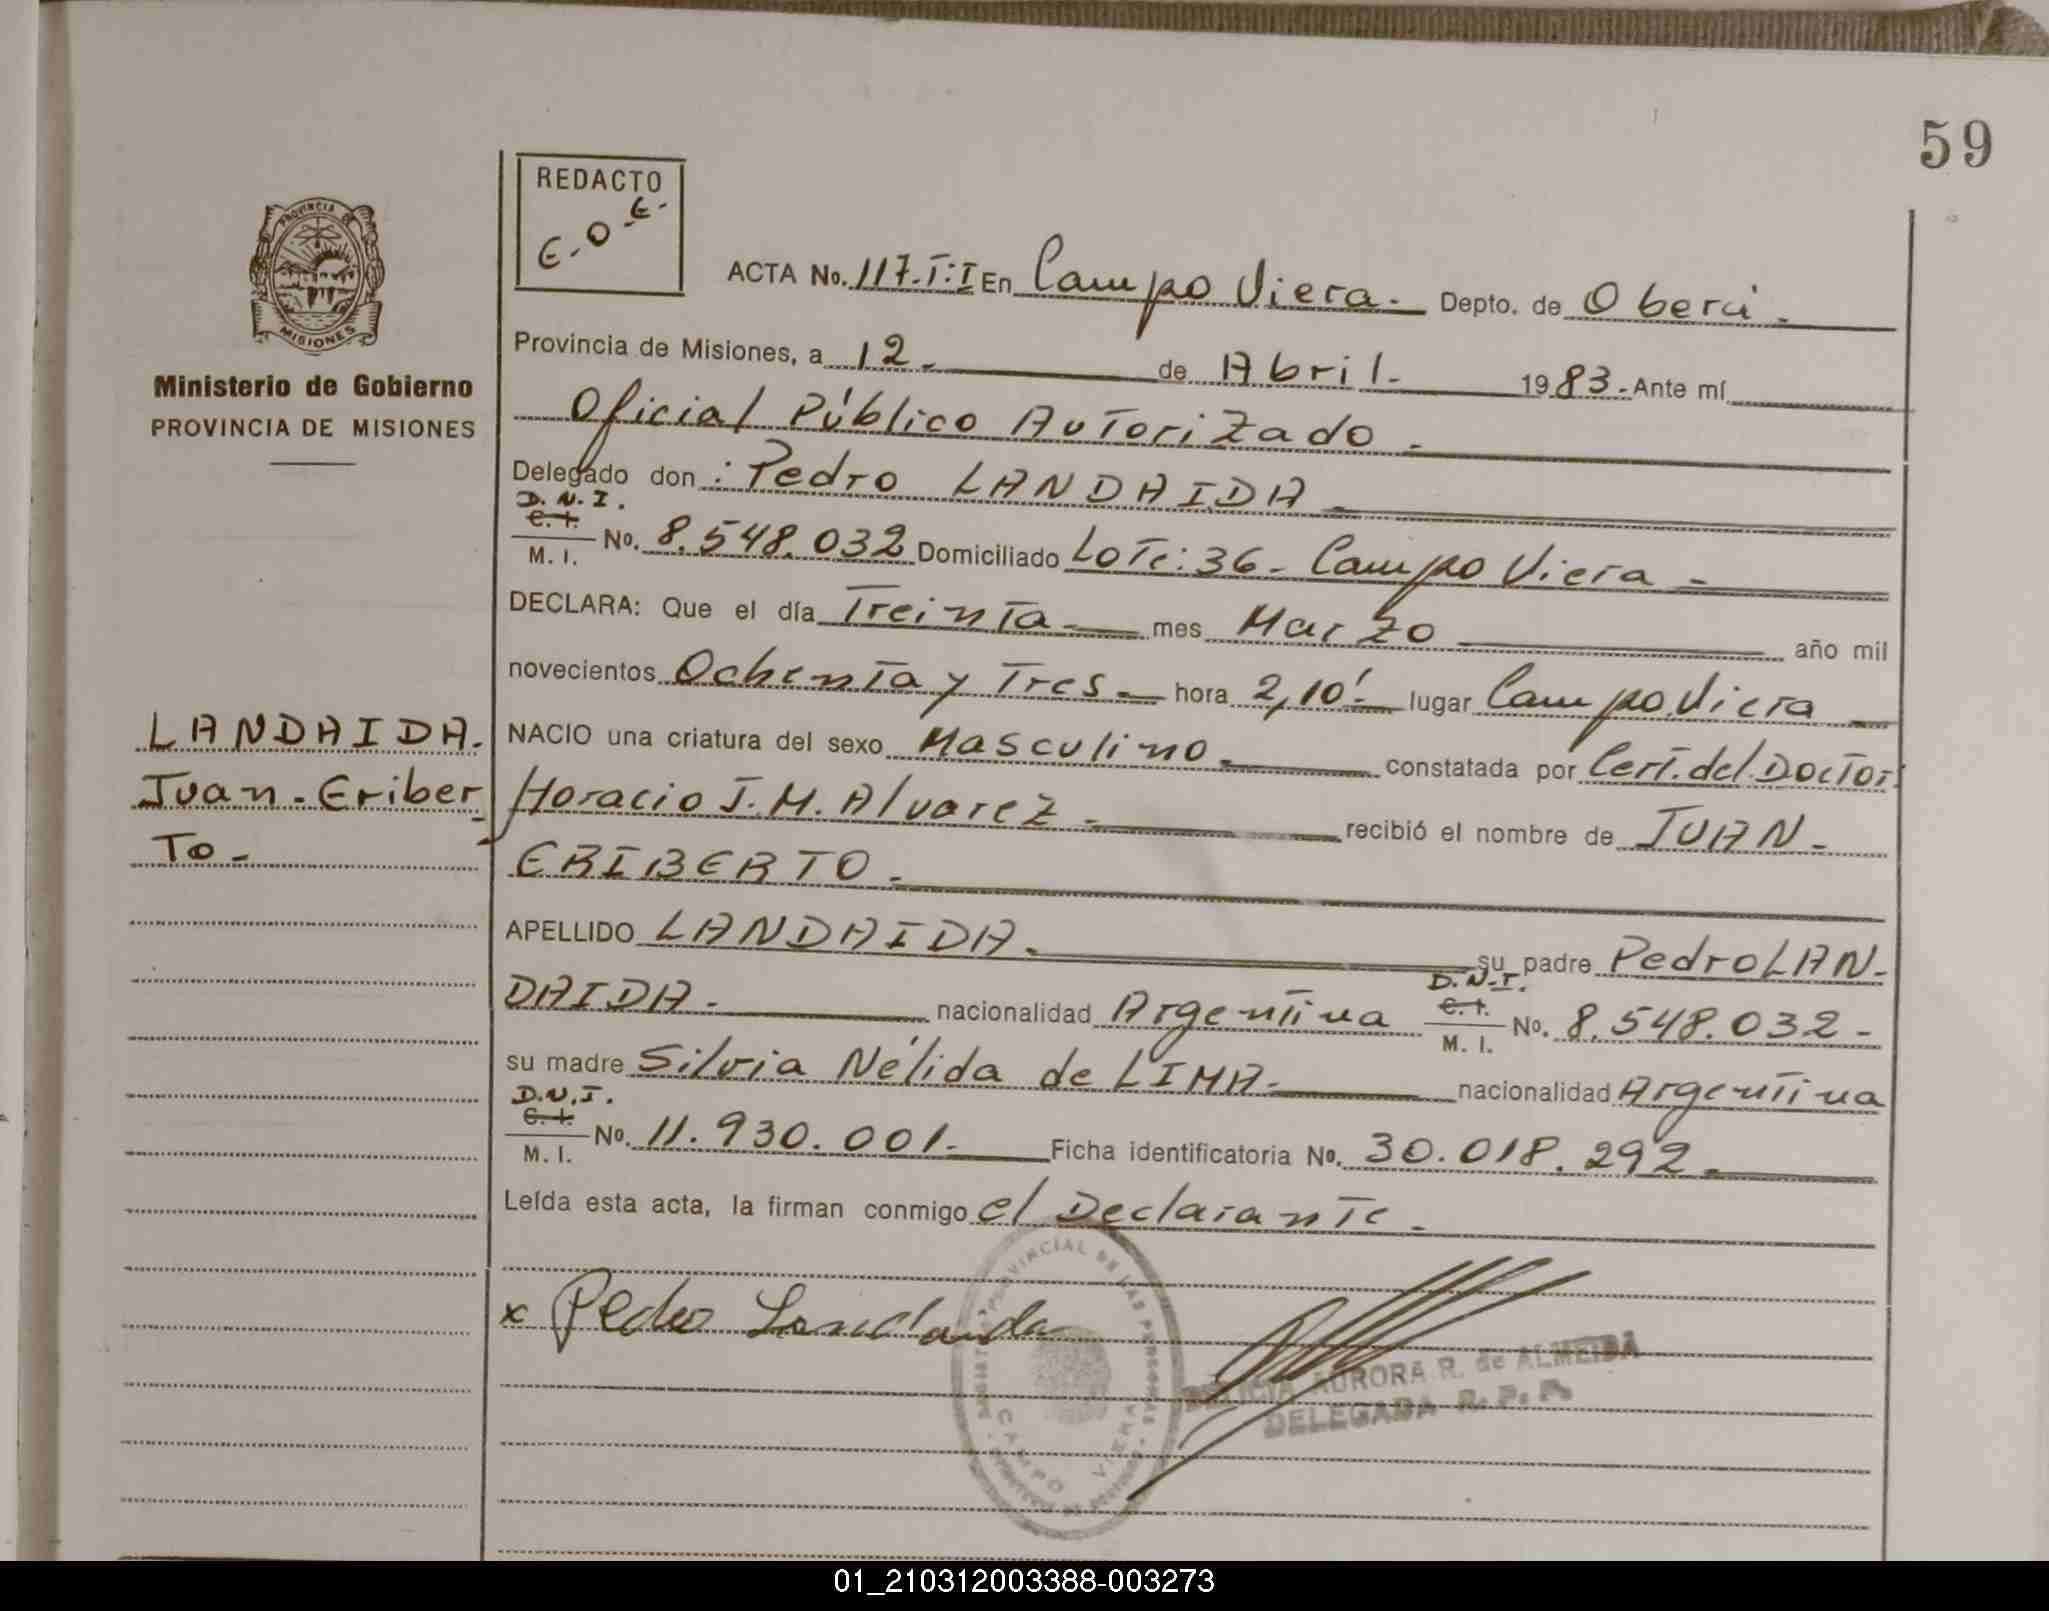 59
REDACTO
E.O.E.
PROVINCIA DE
MISIONES
Ministerio de Gobierno
PROVINCIA DE MISIONES
ACTA No. 117.T:I En Campo Viera. Depto. de Oberá.
Provincia de Misiones, a 12. de Abril. 1983. Ante mí
Oficial Público Autorizado.
Delegado don: Pedro LANDAIDA
D.N.I.
C.I.
M.I. No. 8.548.032 Domiciliado Lote: 36. Campo Viera
DECLARA: Que el día Treinta mes Marzo año mil
novecientos Ochenta y Tres. hora 2,10'. lugar Campo Viera
NACIO una criatura del sexo Masculino constatada por Cert. del Doctor
Horacio J.M. Alvarez. recibió el nombre de JUAN.
ERIBERTO.
LANDAIDA.
Juan. Eriber
to.
APELLIDO LANDAIDA. su padre Pedro LAN-
D.N.I.
C.I.
DAIDA. nacionalidad Argentina M.I. No. 8.548.032-
su madre Silvia Nélida de LIMA. nacionalidad Argentina
D.N.I.
C.I.
M.I. No. 11.930.001. Ficha identificatoria No. 30.018.292.
Leída esta acta, la firman conmigo el Declarante.
x Pedro Landaida
PROVINCIAL DE LAS PERSONAS
CAMPO VIERA
DELICIA AURORA R. de ALMEIDA
DELEGADA R. P. P.
01_210312003388-003273